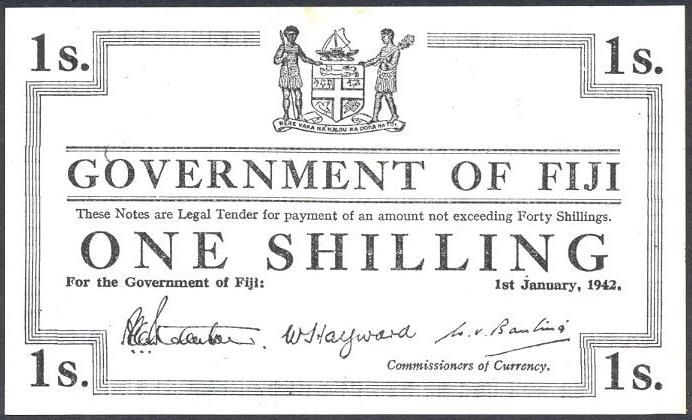 1s. 1s.
RERE VAKA NA KALOU KA DOKA NA TUI
GOVERNMENT OF FIJI
These Notes are Legal Tender for payment of an amount not exceeding Forty Shillings.
ONE SHILLING
For the Government of Fiji: 1st January, 1942.
W Hayward
Commissioners of Currency.
1s. 1s.